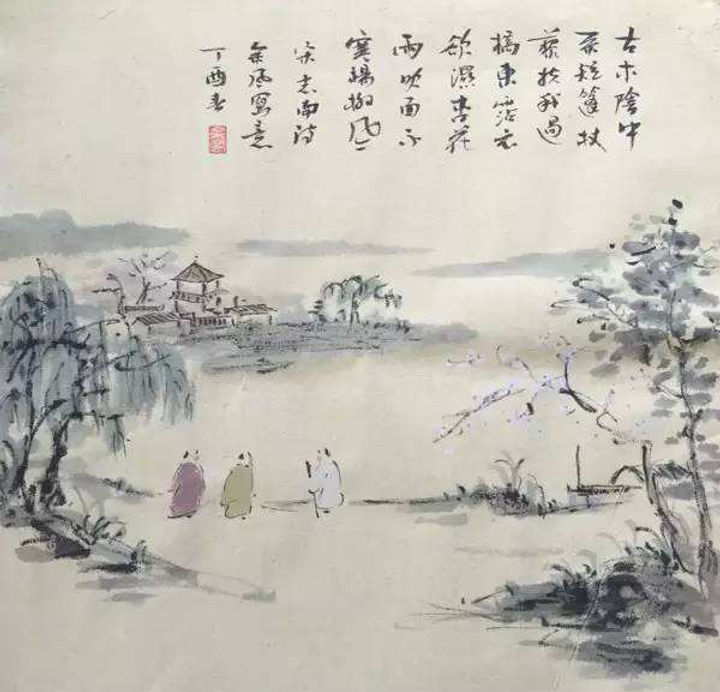 古木陰中
系短篷杖
藜扶我過
橋東霑衣
欲濕杏花
雨吹面不
寒楊柳風
宋志南詩
余風寫意
丁酉春